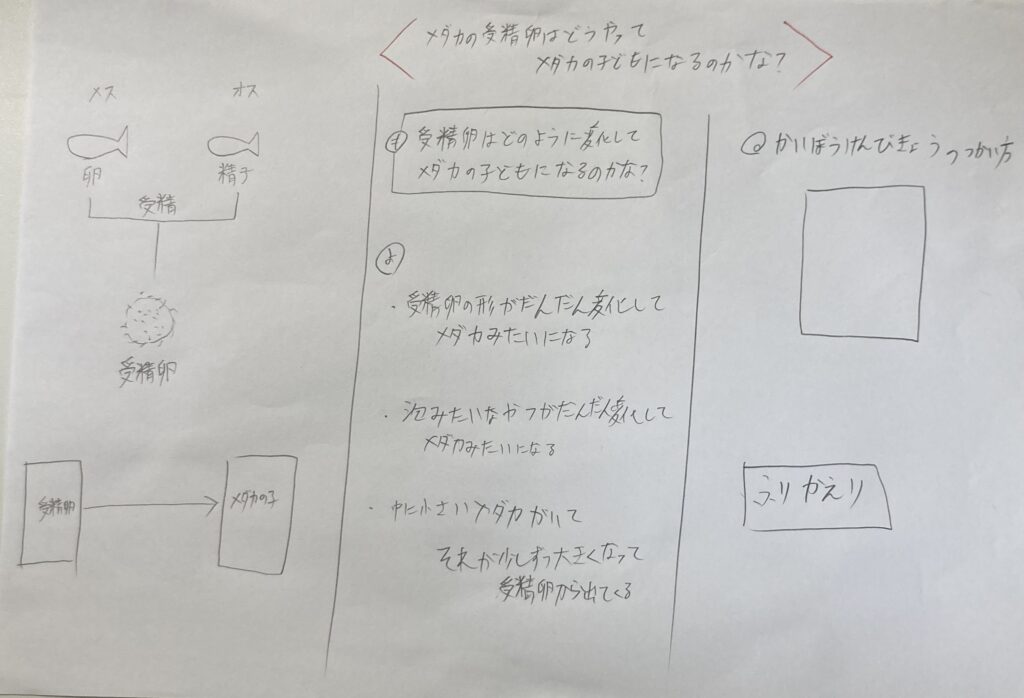 メダカの受精卵はどうやって
メダカの子どもになるのかな?
メス
オス
卵
精子
受精
受精卵
受精卵
メダカの子
受精卵はどのように変化して
メダカの子どもになるのかな?
よ
・受精卵の形がだんだん変化して
メダカみたいになる
・泡みたいなやつがだんだん変化して
メダカみたいになる
・中に小さいメダカがいて
それが少しずつ大きくなって
受精卵から出てくる
かいぼうけんびきょうのつかい方
ふりかえり